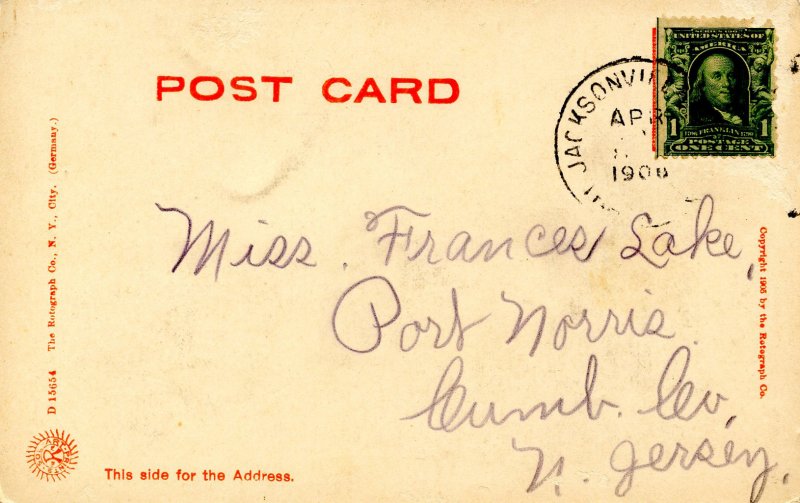 POST CARD
SERIES 1902
UNITED STATES OF
AMERICA
1 1706 FRANKLIN 1790 1
POSTAGE
ONE CENT
JACKSONVILLE
APR
190
Miss. Frances Lake,
Port Norris.
Cumb. Co,
N. Jersey,
D 15654 The Rotograph Co., N. Y., City. (Germany.)
Copyright 1905 by the Rotograph Co.
This side for the Address.